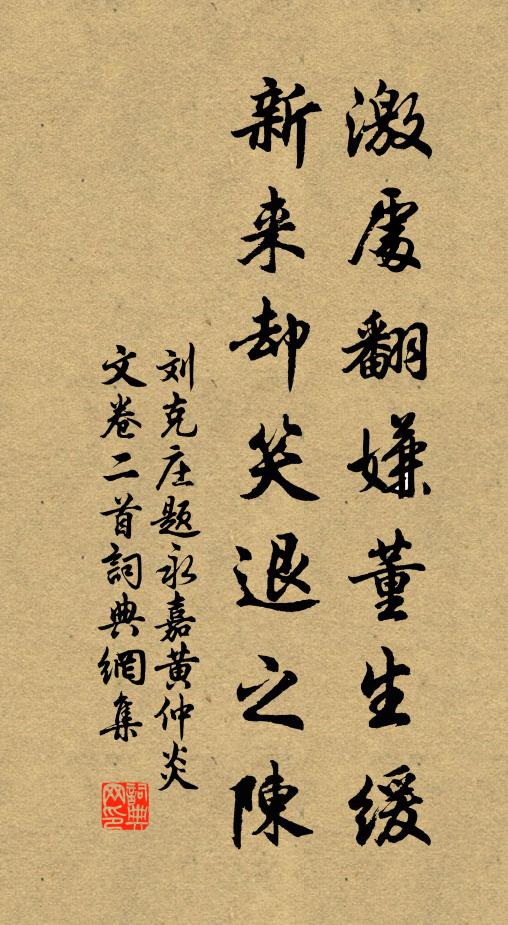 激處翻嫌董生緩
新来却笑退之陳
刘克庄题永嘉黄仲炎
文卷二首詞典網集
詞典
网印